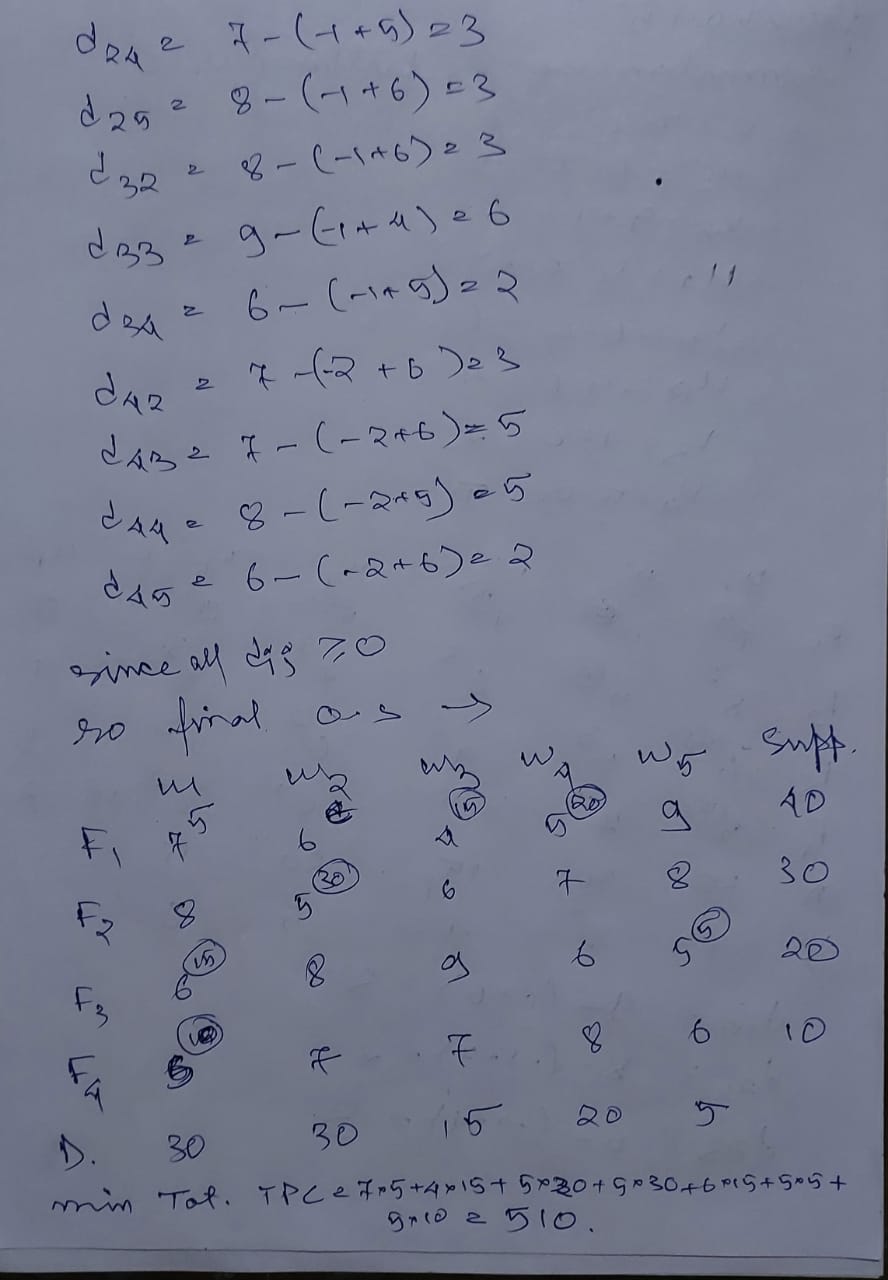 d24 = 7-(-1+5) = 3
d25 = 8-(-1+6) = 3
d32 = 8-(-1+6) = 3
d33 = 9-(-1+4) = 6
d34 = 6-(-1+5) = 2
d42 = 7-(-2+6) = 3
d43 = 7-(-2+6) = 5
d44 = 8-(-2+5) = 5
d45 = 6-(-2+6) = 2
since all dij ≥0
so final ans →
W2 W3 W4 W5 Supp.
F1 7 5 6 ε 4 (15) 5 (20) 9 40
F2 8 5 (30) 6 7 8 30
F3 6 (15) 8 9 6 5 (5) 20
F4 5 (10) 7 7 8 6 10
D. 30 30 15 20 5
min Tot. TPC = 7×5+4×15+5×20+5×30+6×15+5×5+
5×10 = 510.